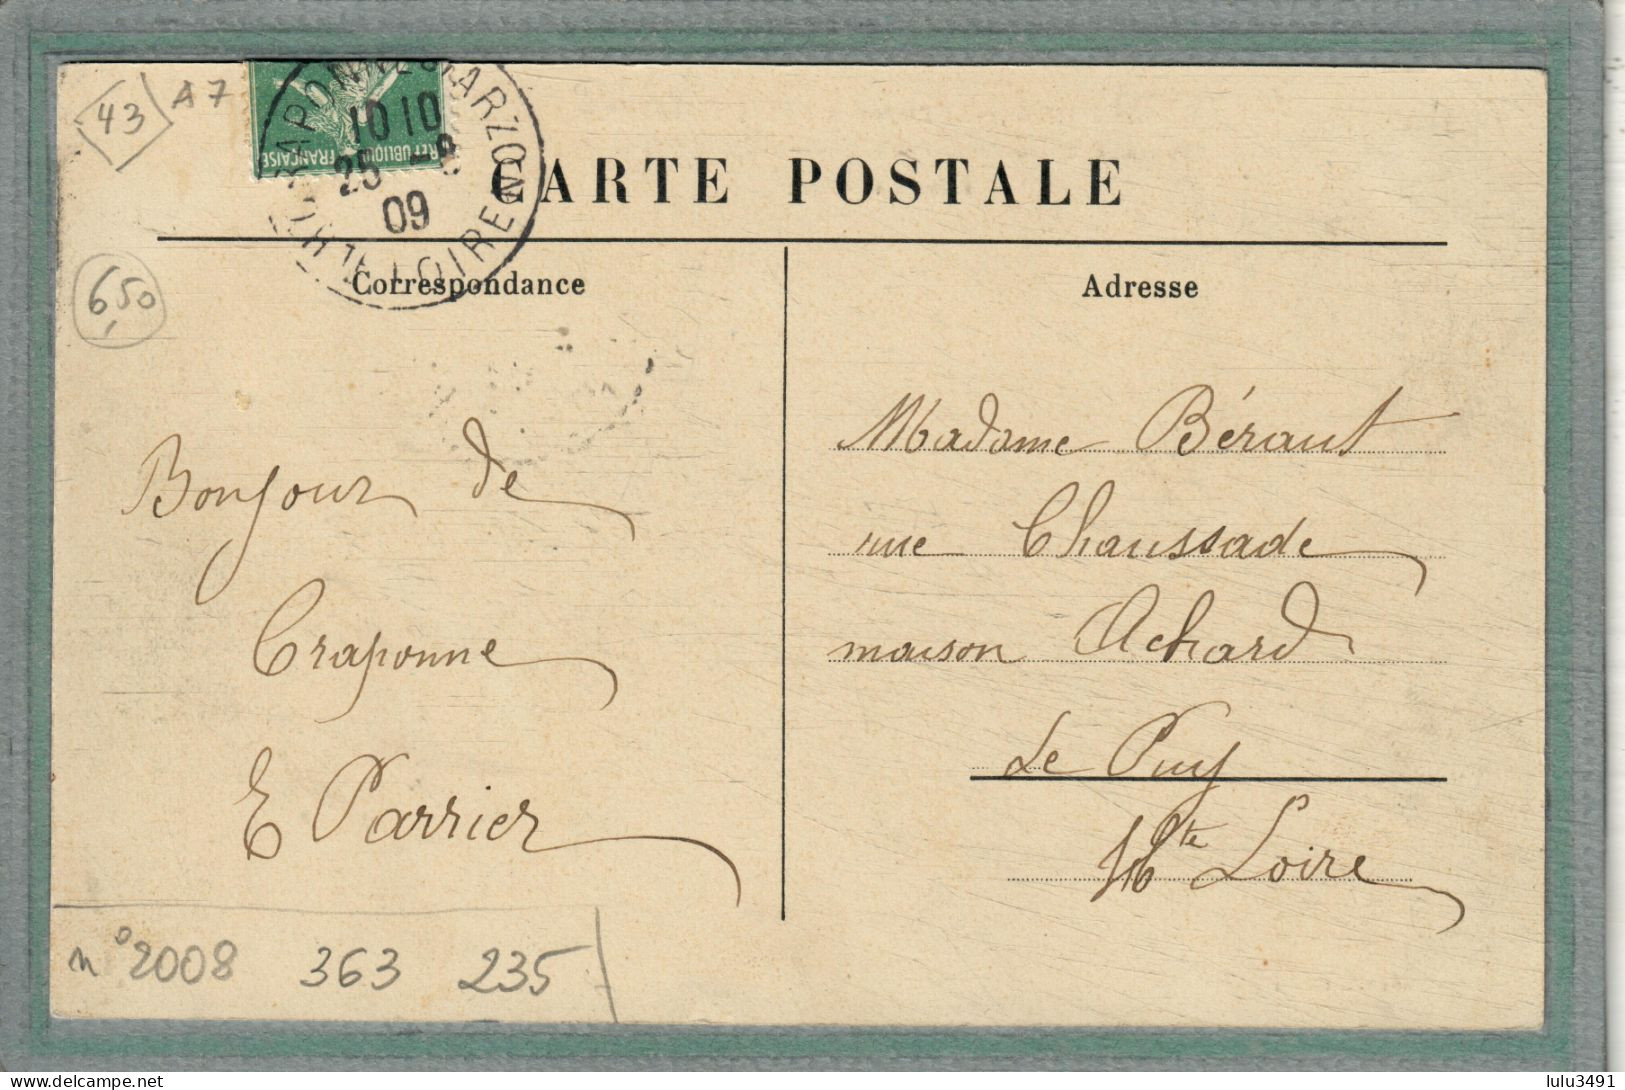 43 A7
RÉPUBLIQUE FRANÇAISE
CRAPONNE S/ ARZON
10 10
25 -8
09
HTE LOIRE
CARTE POSTALE
Correspondance
Adresse
650
Bonjour de
Craponne
E Parrier
Madame Béraut
rue Chaussade
maison Achard
Le Puy
Hte Loire
n° 2008 363 235
delcampe.net
lulu3491